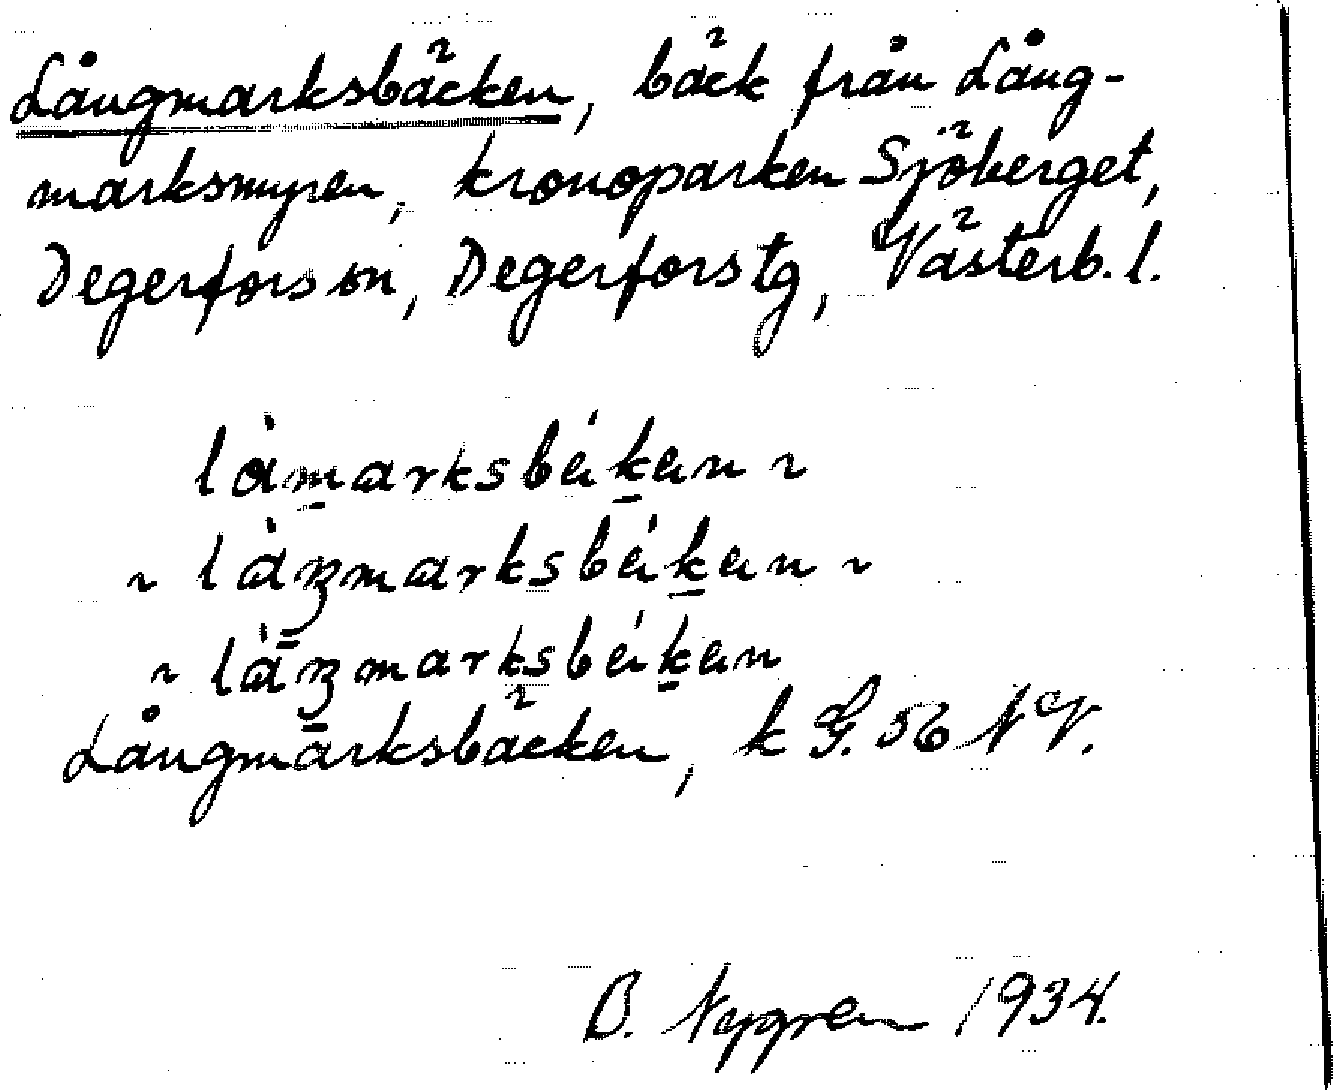 Långmarksbäcken, bäck från Lång-
marksmyren, kronoparken Sjöberget,
Degerfors sn, Degerfors tg, Västerb. l.
làmarksbékan ~
~ làŋmarksbékan ~
~ làŋmarksbékan
Långmarksbäcken, k G. 56 NV.
B. Nygren 1934.